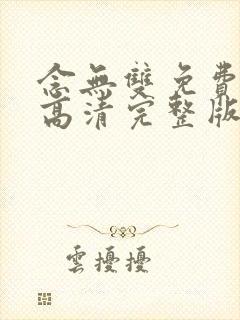 念無雙免費
高清完整版
雲擾擾